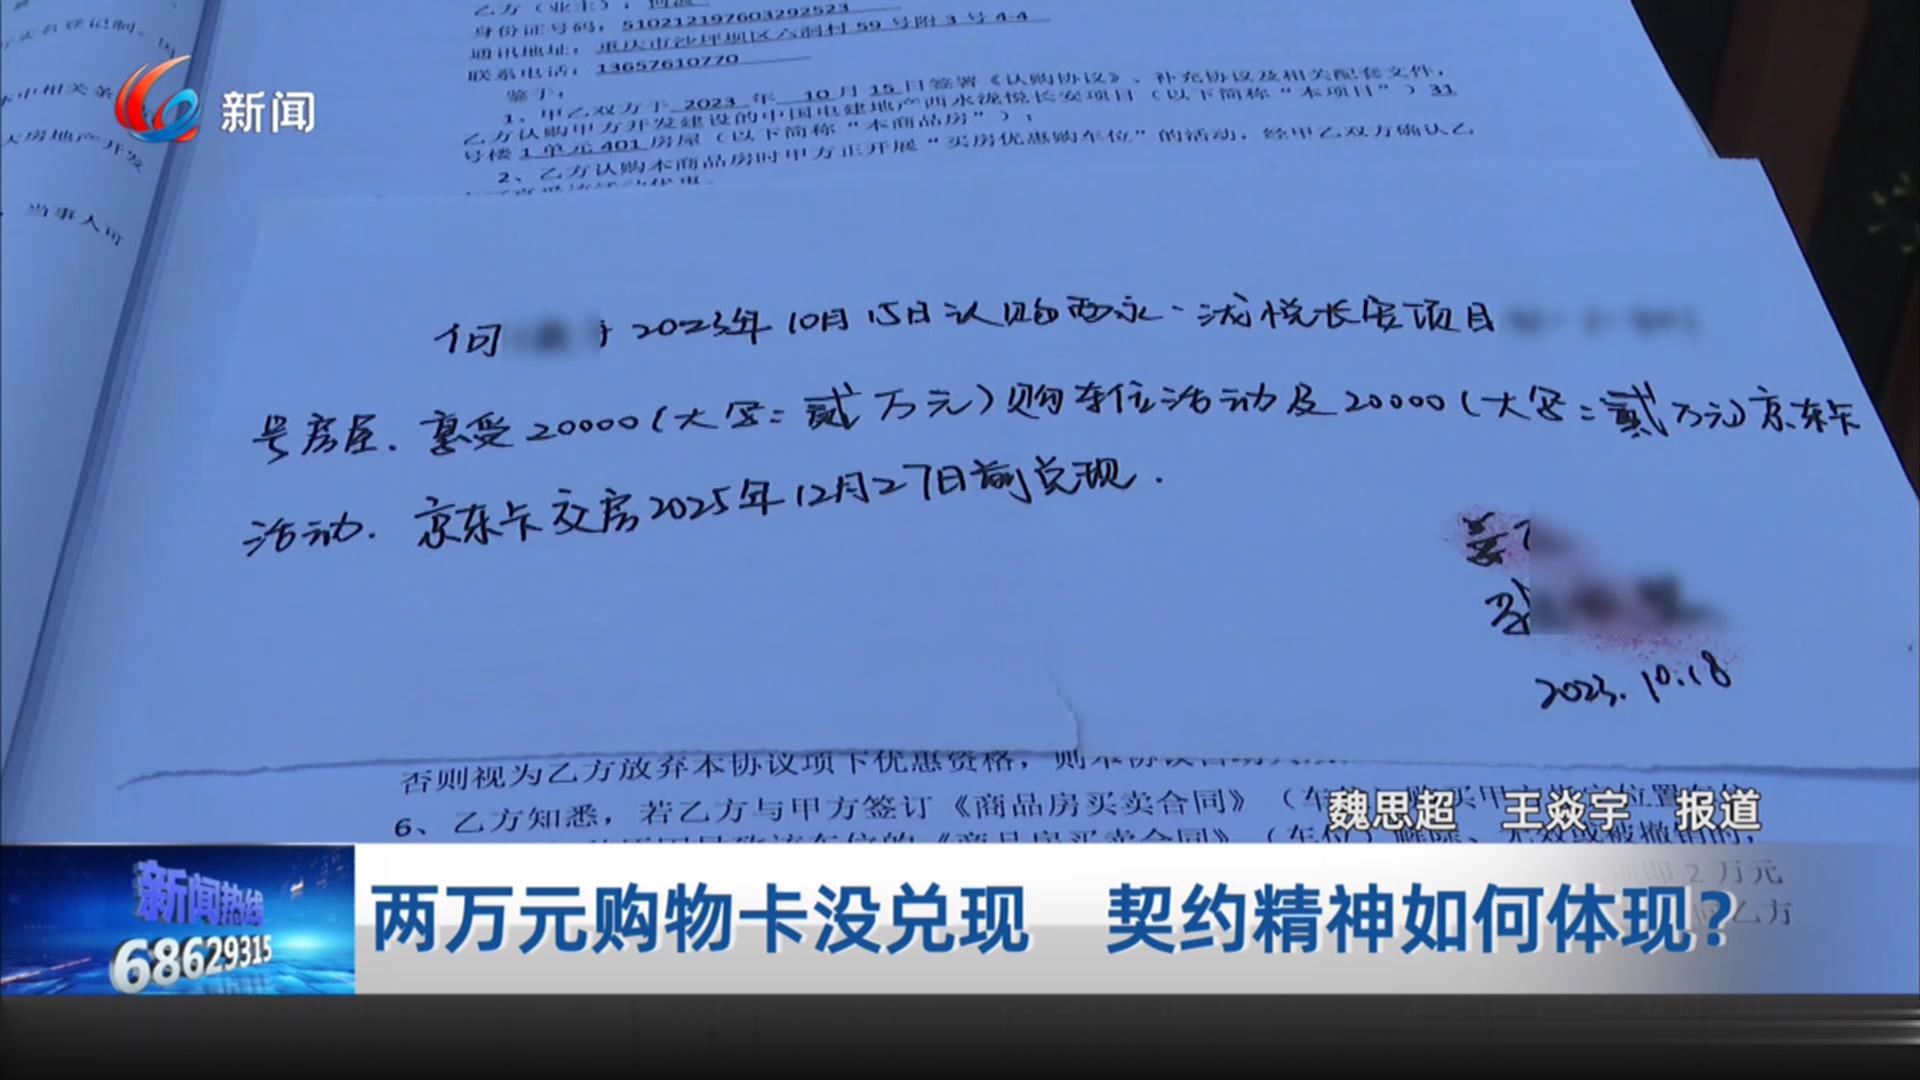 方实名登记制。因
本中相关条
人房地产开发
，当事人可
新闻
乙方（业主）：何波
身份证号码：510212197603292523
通讯地址：重庆市沙坪坝区六洞村59号附3号4-4
联系电话：13657610770
鉴于：
1、甲乙双方于 2023 年 10 月 15 日签署《认购协议》、补充协议及相关配套文件，
乙方认购甲方开发建设的中国电建地产西永泷悦长安项目（以下简称“本项目”）31
号楼 1 单元 401 房屋（以下简称“本商品房”）；
2、乙方认购本商品房时甲方正开展“买房优惠购车位”的活动，经甲乙双方确认乙
何 于2023年10月15日认购西永·泷悦长安项目
号房屋．享受20000（大写：贰万元）购车位活动及20000（大写：贰万元）京东卡
活动．京东卡交房2025年12月27日前兑现．
姜
2023.10.18
否则视为乙方放弃本协议项下优惠资格，则本协议自动
6、乙方知悉，若乙方与甲方签订《商品房买卖合同》（车
魏思超 王焱宇 报道
的《商品房买卖合同》（车位）解除、无效或被撤销的，
2 万元
乙方
新闻热线
68629315
两万元购物卡没兑现 契约精神如何体现?